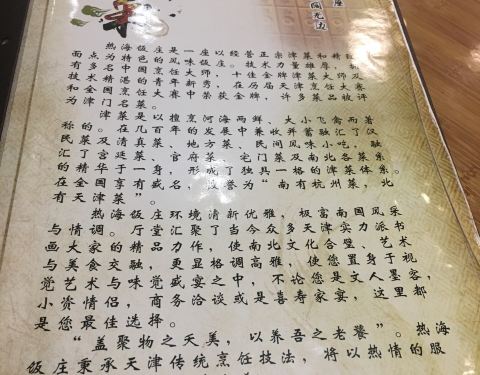 座
阔无边
热海饭庄是一座以经营正宗津菜和精
面点为特色的风味饭庄。技术力量雄厚，
有多名精中国烹饪大师，十佳金牌津菜大师及
技术精湛的青年新秀，在历届天津烹饪大赛
和全国烹饪大赛中荣获金牌，许多菜品被评
为天津名菜。
津菜是以擅烹河海两鲜、大小飞禽而著
称的。在几百年的发展中兼收并蓄融汇了汉
民菜及清真菜、地方菜、民间风味小吃，融
汇了宫廷菜、官府菜、宅门菜及南北各菜系
的精华于一身，形成了独具一格的津菜体系。
在全国享有盛名，被誉为“南有杭州菜，北
有天津菜”。
热海饭庄环境清新优雅，极富南国风采
与情调。厅堂汇聚了当今众多天津实力派书
画大家的精品力作，使南北文化合壁、艺术
与美食交融，更显格调高雅，使您置身于视
觉艺术与味觉盛宴之中，不论您是文人墨客，
小资情侣，商务洽谈或是喜寿家宴，这里都
是您最佳选择。
“盖聚物之夭美，以养吾之老饕”。热海
饭庄秉承天津传统烹饪技法，将以热情的服